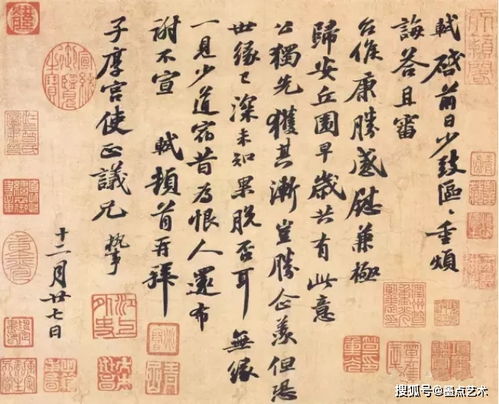 軾啓前日少致區〻重煩
誨答且審
台候康勝感慰兼極
歸安丘園早歲共有此意
公獨先獲其漸豈勝企羨但恐
世緣已深未知果脫否耳無緣
一見少道宿昔為恨人還布
謝不宣 軾頓首再拜
子厚宮使正議兄 執事
十二月廿七日
搜狐号@墨点艺术